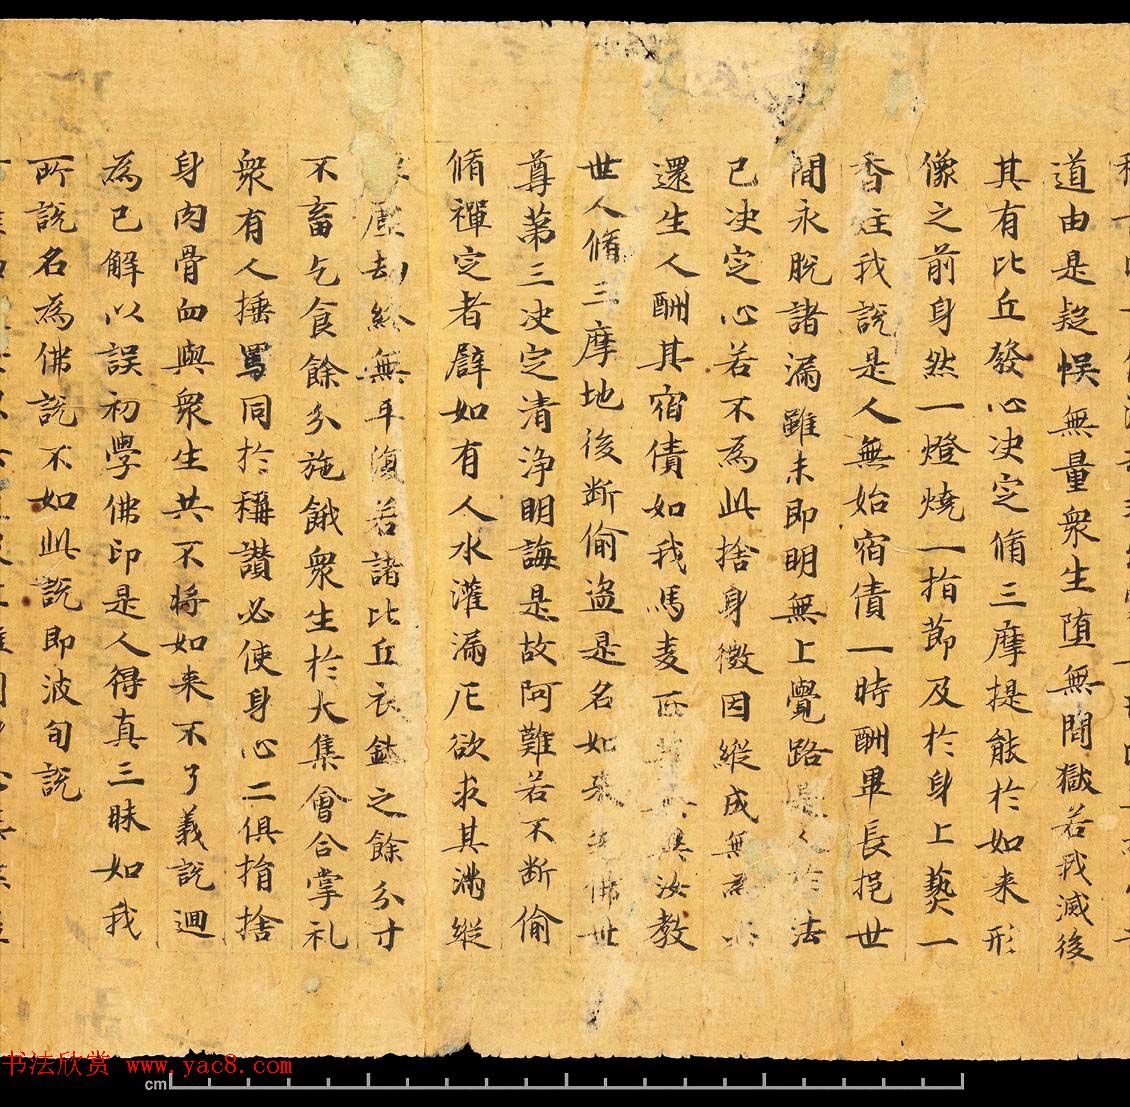 道由是疑悞無量衆生墮無間獄若我滅後
其有比丘發心决定脩三摩提能於如来形
像之前身然一燈燒一指節及於身上爇一
香炷我說是人無始宿債一時酬畢長挹世
間永脫諸漏雖未即明無上覺路是人於法
已决定心若不為此捨身微因縱成無為必
還生人酬其宿債如我馬麦正等無異汝教
世人脩三摩地後断偷盗是名如来先佛世
尊苐三决定清淨明誨是故阿難若不断偷
脩禪定者辟如有人水灌漏巵欲求其滿縱
塵劫終無平復若諸比丘衣鉢之餘分寸
不畜乞食餘分施餓衆生於大集會合掌礼
衆有人捶罵同於稱讃必使身心二俱捐捨
身肉骨血與衆生共不將如来不了義說迴
為已解以誤初學佛印是人得真三昧如我
所說名為佛說不如此說即波旬說
书法欣赏 www.yac8.com
cm